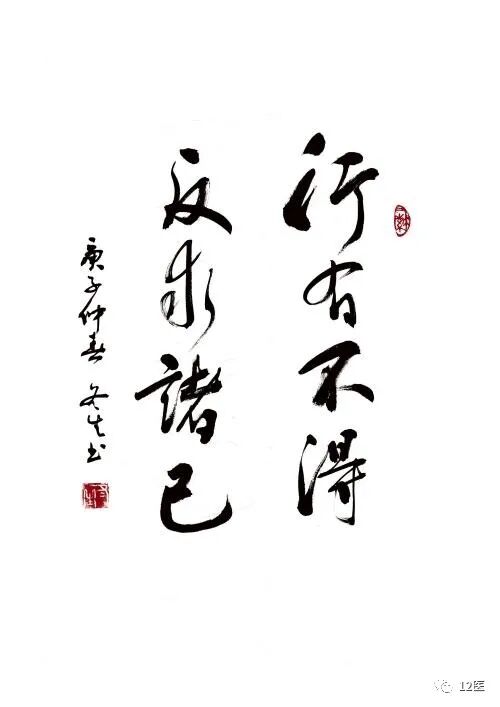 行有不得
反求諸己
庚子仲春 冬生书
12医